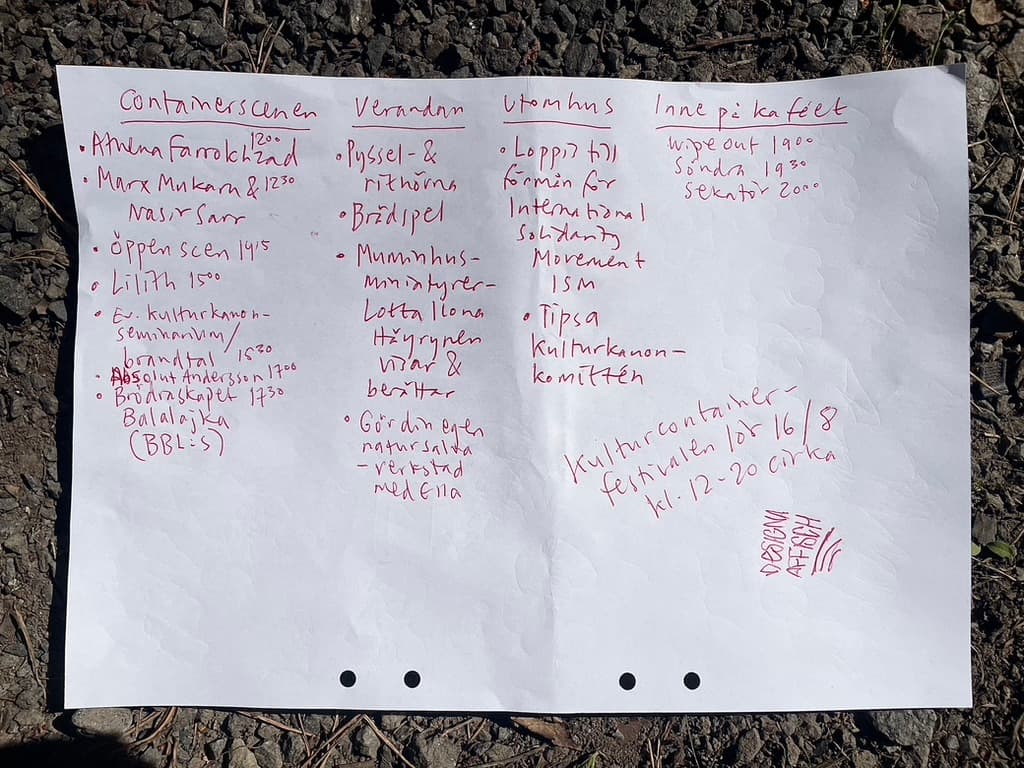 Containerscenen
• Athena Farrokhzad 1200
• Marx Mukam & 1230
Nasir Sarr
• Öppen scen 1415
• Lilith 1500
• Ev. kulturkanon-
seminarium/
brandtal 1530
• Absolut Andersson 1700
• Brödraskapet 1730
Balalajka
(BBL:s)
Verandan
• Pyssel- &
rithörna
• Brädspel
• Muminhus-
miniatyrer-
Lotta Ilona
Häyrynen
visar &
berättar
• Gör din egen
natursalva
-verkstad
med Ella
Utomhus
• Loppis till
förmån för
International
Solidarity
Movement
ISM
• Tipsa
kulturkanon-
komittén
Inne på kaféet
wipe out 1900
Söndra 1930
Sekatör 2000
Kulturcontainer-
festivalen lör 16/8
kl. 12-20 cirka
DESIGNA
AFFISCH